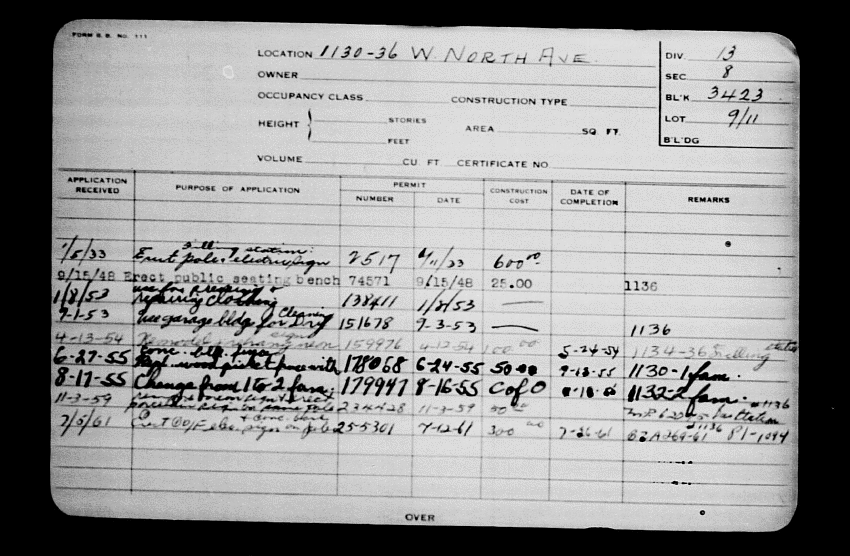 FORM B. B. NO. 111
LOCATION 1130-36 W. NORTH AVE. DIV. 13
OWNER SEC 8
OCCUPANCY CLASS CONSTRUCTION TYPE BL'K 3423
HEIGHT STORIES AREA SQ. FT. LOT 9/11
FEET B'L'DG
VOLUME CU FT CERTIFICATE NO
APPLICATION RECEIVED PURPOSE OF APPLICATION PERMIT NUMBER DATE CONSTRUCTION COST DATE OF COMPLETION REMARKS
filling station:
1/5/33 Erect pole & electric sign 2517 1/11/33 600.00
9/15/48 Erect public seating bench 74571 9/15/48 25.00 1136
use for pressing &
1/8/53 repairing clothing 138411 1/8/53 —
Cleaning
9-1-53 Use garage bldg for Dry 151678 9-3-53 — 1136
signs station
4-13-54 Remodel 159976 4-12-54 5-24-54 1134-36 Filling
conc. blk.
6-27-55 wood picket fence with 178068 6-24-55 50.00 9-13-55 1130-1 fam.
8-17-55 Change from 1 to 2 fam. 179947 8-16-55 C of O 1132-2 fam. 1136
11-3-59 234428 11-3-59 50.00
1136
Erect sign on pole 255301 7-12-61 300.00 7-26-61 BZA 269-61 P1-1094
OVER